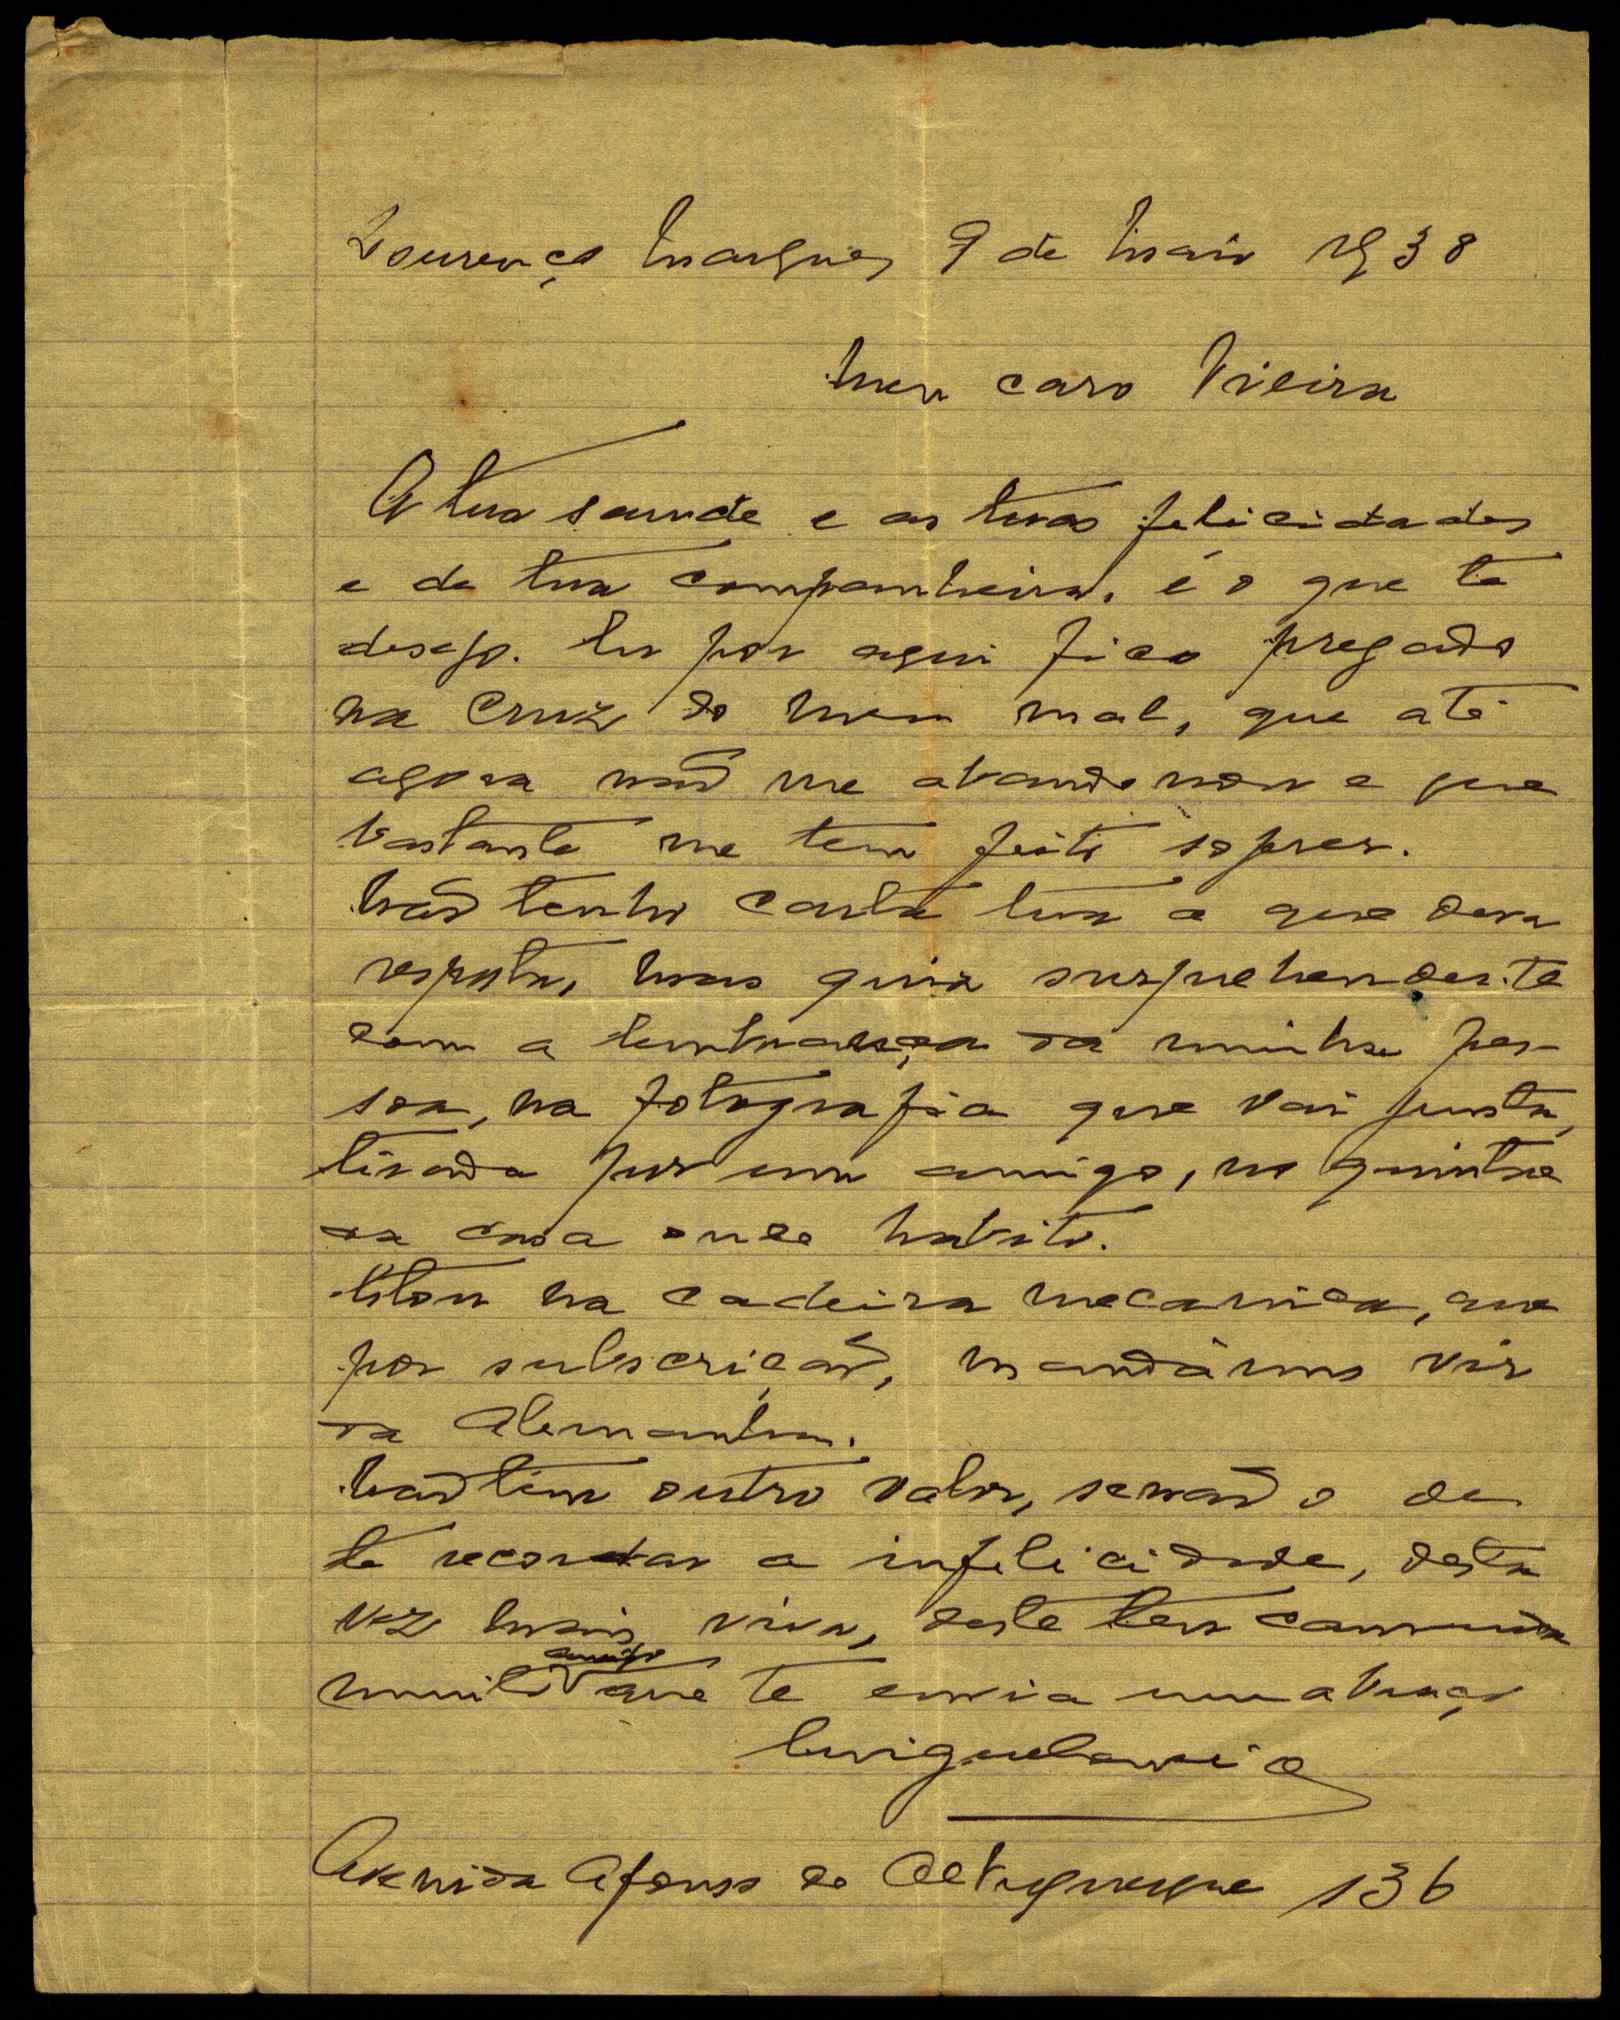 Lourenço Marques 9 de Maio 1938
Meu caro Vieira
A tua saude e as tuas felicidades
e da tua companheira, é o que te
desejo. Eu por aqui fico pregado
na cruz do meu mal, que até
agora não me abandonou e que
bastante me tem feito sofrer.
Não tenho carta tua a que deva
resposta, mas quiz surprehender-te
com a lembrança da minha pes-
soa, na fotografia que vai junta,
tirada por um amigo, no quintal
da casa onde habito.
Estou na cadeira mecanica, que
por subscrição, mandámos vir
da Alemanha.
Não tem outro valor, senão o de
te recordar a infelicidade, desta
vez mais viva, deste teu camarada
muito amigo que te envia um abraço
Avenida Afonso de Albuquerque 136